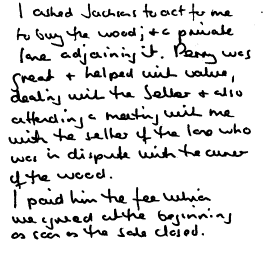 I asked Jacksons to act for me
to buy the wood; & a private
lane adjoining it. Perry was
great & helped with value,
dealing with the seller & also
attending a meeting with me
with the seller of the lane who
was in dispute with the owner
of the wood.
I paid him the fee which
we agreed at the beginning
as soon as the sale closed.